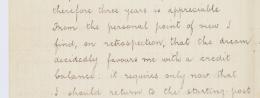 therefore three years is appreciable
From the personal point of view I
find, on retrospection, that the dream
decidedly favours me with a credit
balance: it requires only now that
I should return to the starting-post